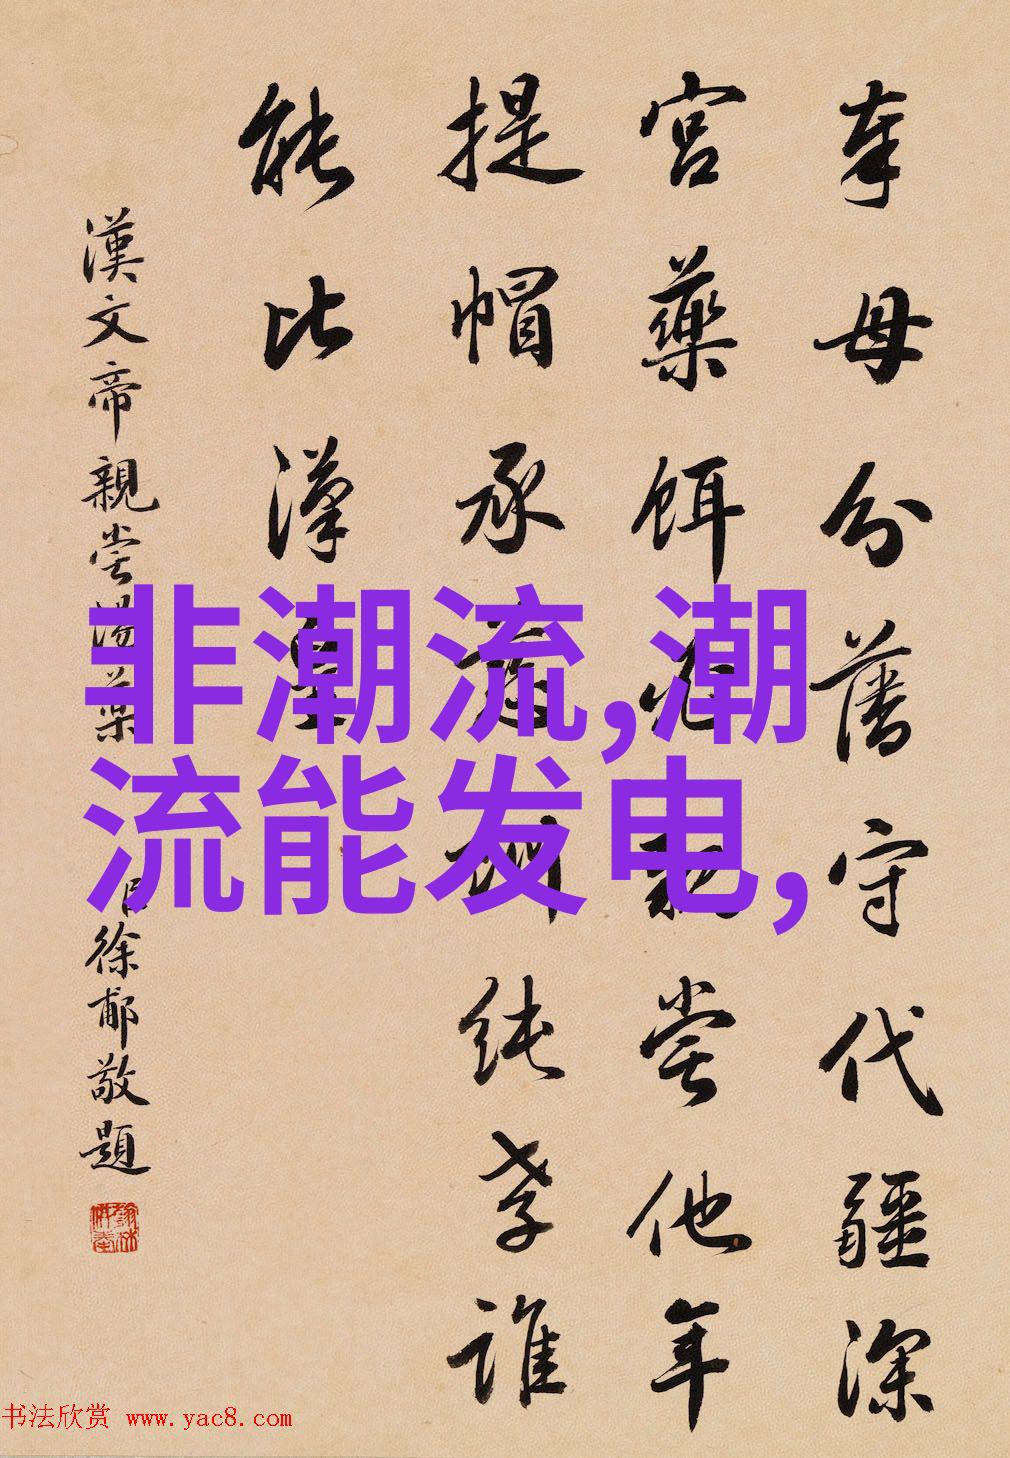 奉母分藩守代疆深
宮藥餌親嘗他年
提帽承訓純孝誰
能比漢
漢文帝親嘗湯藥
徐郙敬題
非潮流,潮
流能发电,
书法欣赏 www.yac8.com